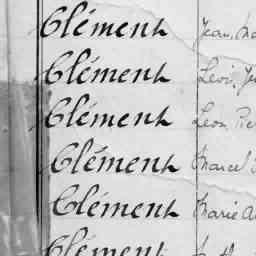 Clément Jean
Clément Léon
Clément Léon
Clément Marcel
Clément Marie
Clément